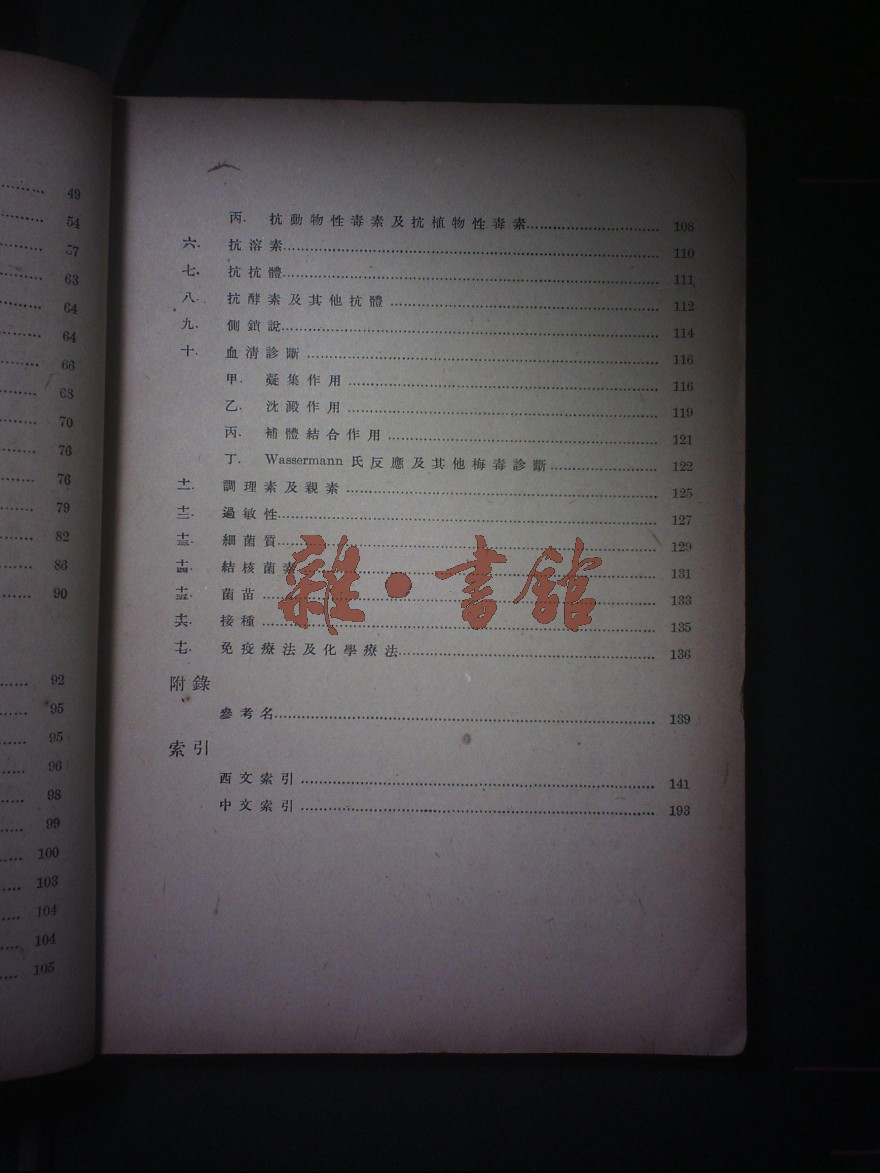 49
54
57
63
64
64
66
68
70
76
76
79
82
86
90
92
95
95
96
98
99
100
103
104
104
105
丙. 抗動物性毒素及抗植物性毒素 108
六. 抗溶素 110
七. 抗抗體 111
八. 抗酵素及其他抗體 112
九. 側鎖說 114
十. 血清診斷 116
甲. 凝集作用 116
乙. 沈澱作用 119
丙. 補體結合作用 121
丁. Wassermann 氏反應及其他梅毒診斷 122
十一. 調理素及親素 125
十二. 過敏性 127
十三. 細菌質 129
十四. 結核菌素 131
十五. 菌苗 133
十六. 接種 135
十七. 免疫療法及化學療法 136
附錄
參考名 139
索引
西文索引 141
中文索引 193
雜·書館